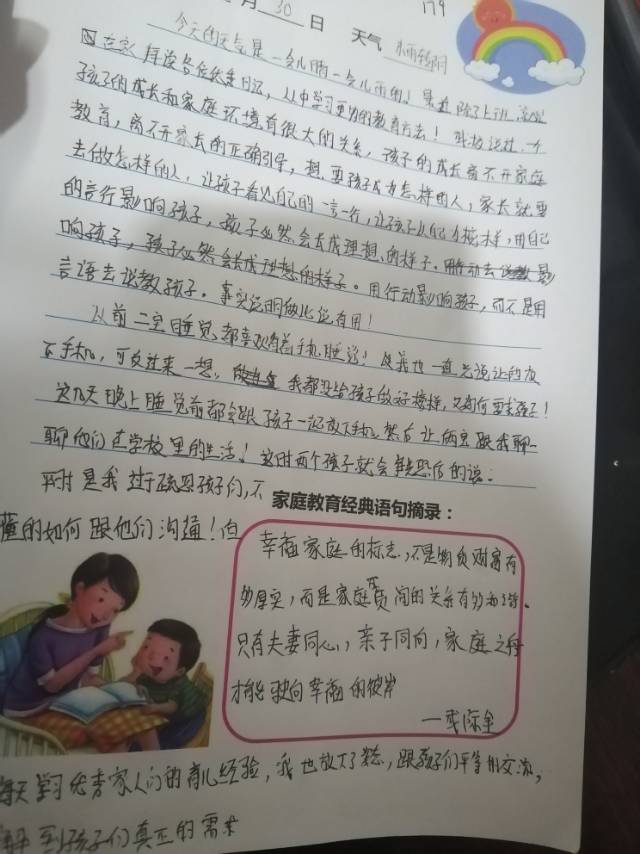 月 30 日 天气 小雨转阴 179
今天的天气是一会儿晴一会儿雨的!最近除了上班,
在家拜读各位优秀日记,从中学习更好的教育方法!
孩子的成长和家庭环境有很大的关系,孩子的成长离不开家庭
教育,离不开家长的正确引导,想要孩子成为怎样的人,家长就要
去做怎样的人,让孩子看见自己的一言一行,让孩子从自己的榜样,用自己
的言行影响孩子,孩子必然会长成理想的样子。
响孩子,孩子必然会长成理想的样子。用行动影响孩子,而不是用
言语去说教孩子。事实说明做比说有用!
从前二宝睡觉都喜欢看着手机睡觉!
下手机,可反过来一想,我都没给孩子做好榜样,又如何要求孩子!
这几天晚上睡觉前都会跟孩子一起放下手机,然后让两宝跟我聊一
聊他们在学校里的生活!这时两个孩子就会争先恐后的说。
平时是我过于疏忽孩子们,不
懂的如何跟他们沟通!但
家庭教育经典语句摘录:
幸福家庭的标志,不是物质财富有
多厚实,而是家庭成员间的关系有多和谐。
只有夫妻同心,亲子同向,家庭之舟
才能驶向幸福的彼岸
每天学习优秀家人们的育儿经验,我也放下了,跟孩子们平等的交流,
到孩子们真正的需求